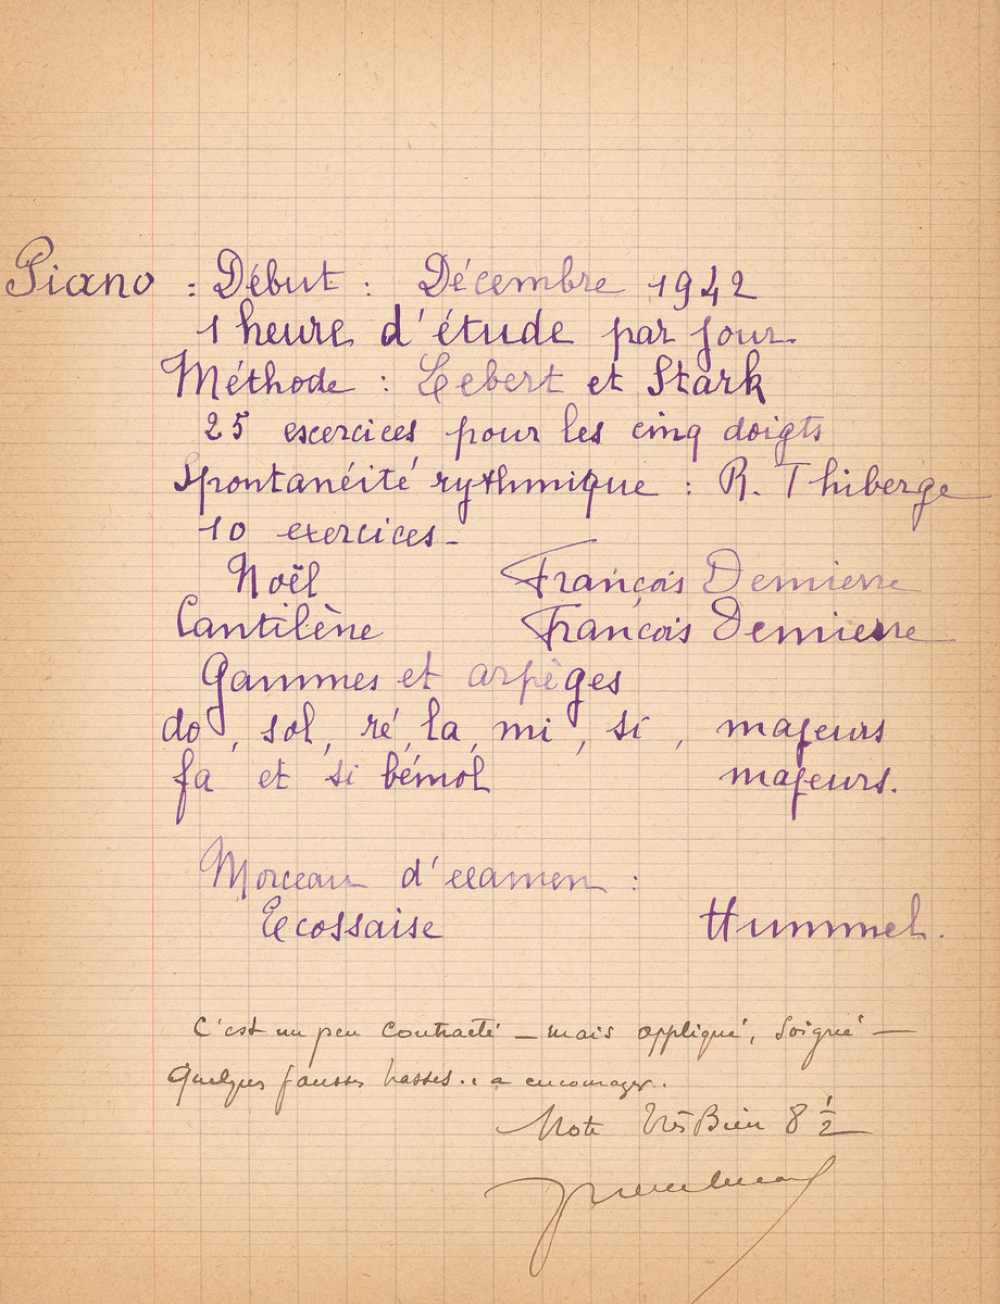 Piano : Début : Décembre 1942
1 heure d'étude par jour.
Méthode : Lebert et Stark
25 exercices pour les cinq doigts
Spontanéité rythmique : R. Thiberge
10 exercices -
Noël François Demierre
Cantilène François Demierre
Gammes et arpèges
do, sol, ré, la, mi, si, majeurs
fa et si bémol majeurs.
Morceau d'examen :
Ecossaise Hummel.
C'est un peu contracté — mais appliqué, soigné —
Quelques fausses basses.. a encourager.
Note Très Bien 8 1/2